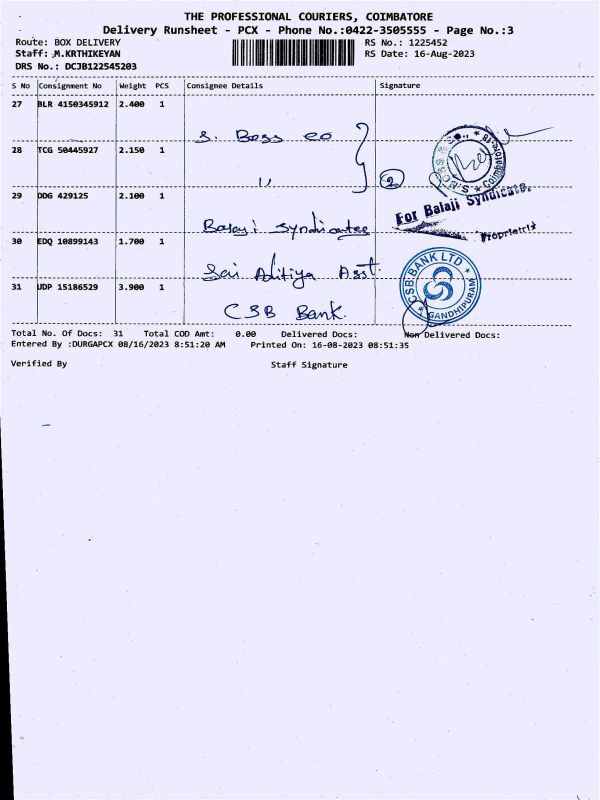 THE PROFESSIONAL COURIERS, COIMBATORE
Delivery Runsheet - PCX - Phone No.:0422-3505555 - Page No.:3
Route: BOX DELIVERY RS No.: 1225452
Staff: M.KRTHIKEYAN RS Date: 16-Aug-2023
DRS No.: DCJB122545203
S No Consignment No Weight PCS Consignee Details Signature
27 BLR 4150345912 2.400 1
S. Boss co
28 TCG 50445927 2.150 1
" 2
29 DDG 429125 2.100 1
For Balaji Syndicate.
Balaji Syndicates
Proprietrix
30 EDQ 10899143 1.700 1
Sai Aditiya Asst.
CSB BANK LTD
31 UDP 15186529 3.900 1
CSB Bank.
GANDHIPURAM
Total No. Of Docs: 31 Total COD Amt: 0.00 Delivered Docs: Non Delivered Docs:
Entered By :DURGAPCX 08/16/2023 8:51:20 AM Printed On: 16-08-2023 08:51:35
Verified By Staff Signature